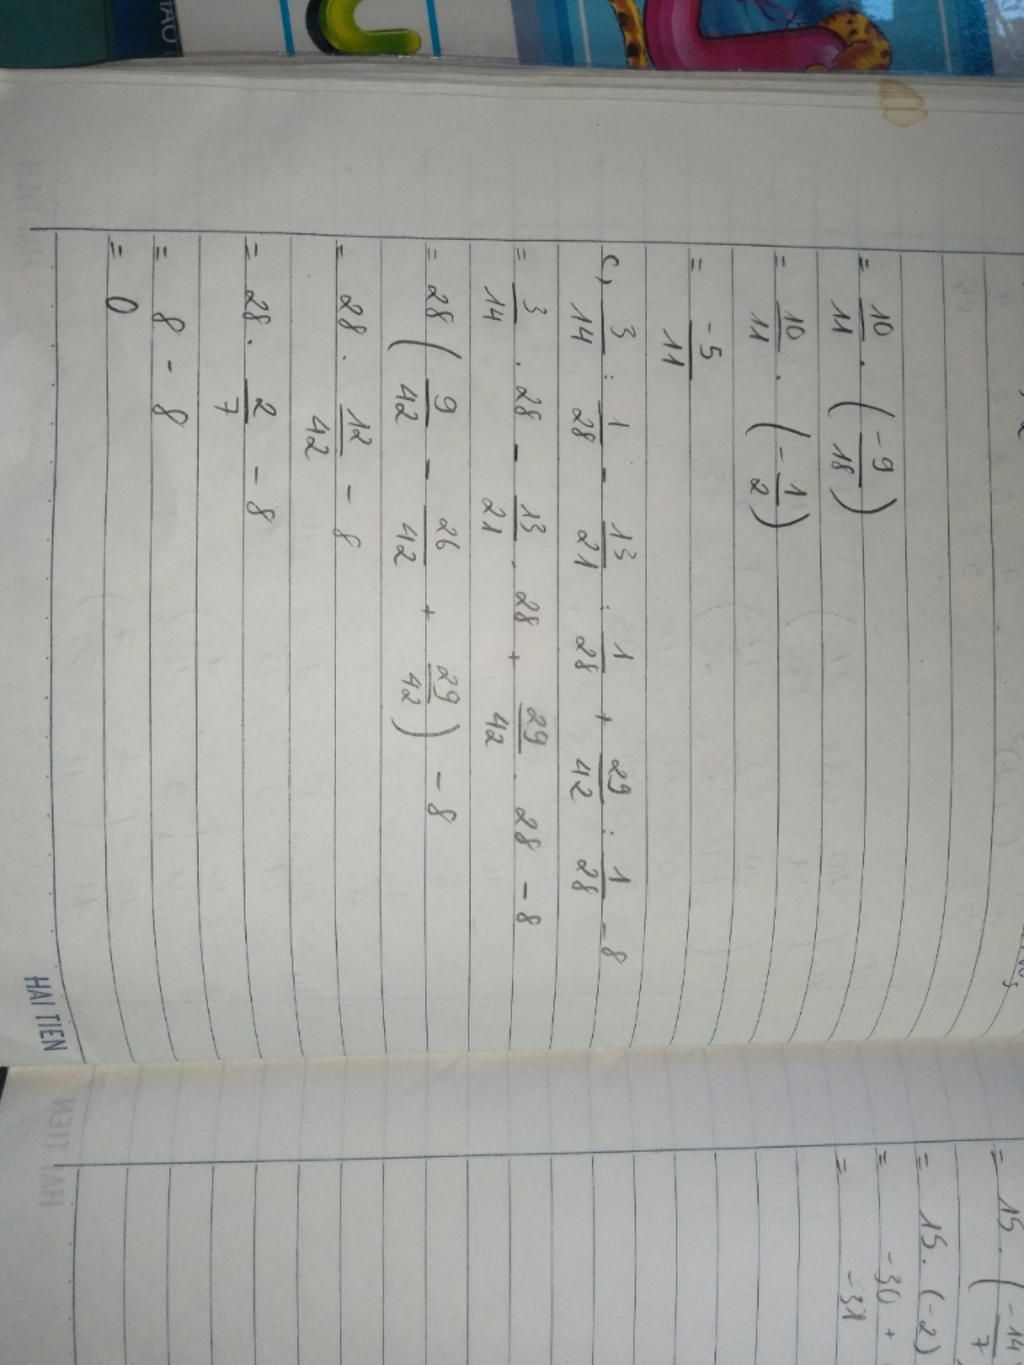 = 10/11 . (-9/18)
= 10/11 . (-1/2)
= -5/11
c, 3/14 : 1/28 - 13/21 : 1/28 + 29/42 : 1/28 - 8
= 3/14 . 28 - 13/21 . 28 + 29/42 . 28 - 8
= 28 (9/42 - 26/42 + 29/42) - 8
= 28 . 12/42 - 8
= 28 . 2/7 - 8
= 8 - 8
= 0
HAI TIEN
= 15 . (-14/7
= 15 . (-2)
= -30 +
= -31